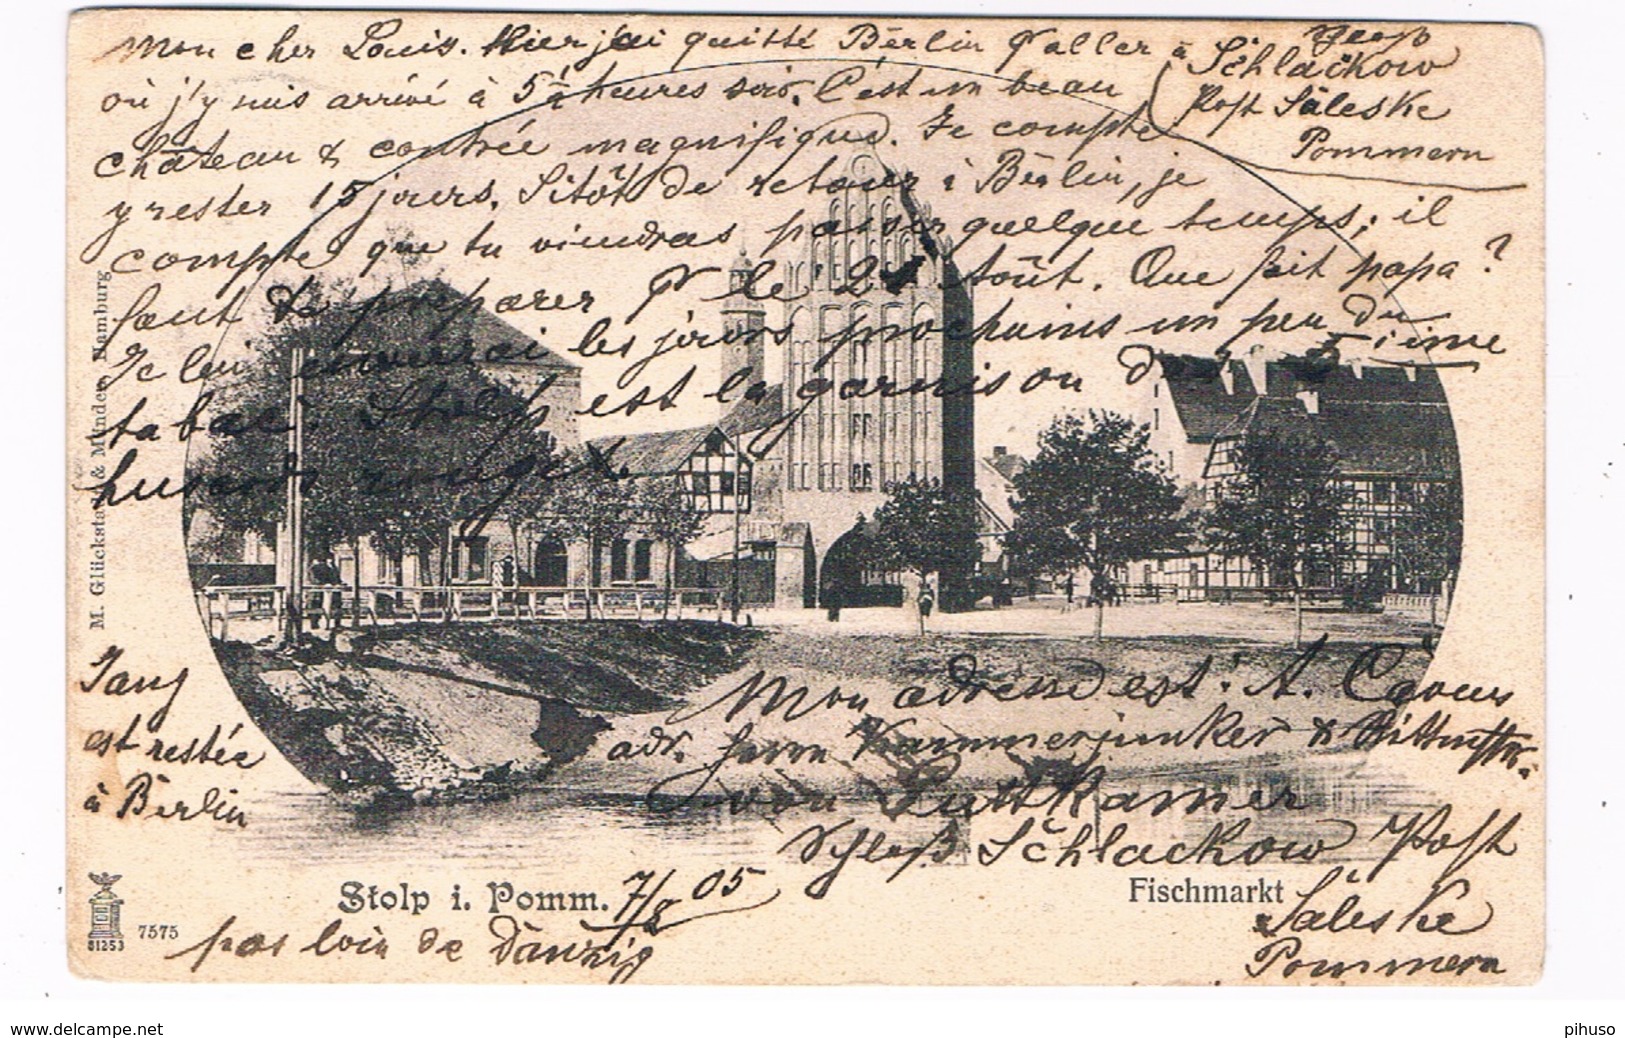 Mon cher Louis. Hier j'ai quitté Berlin p aller à Schloß
Schlackow
Post Saleske
Pommern
où j'y suis arrivé à 5½ heures soir. C'est un beau
château & contrée magnifique. Je compte
y rester 15 jours. Sitôt de retour à Berlin, je
compte que tu viendras passer quelque temps; il
faut te préparer p le 21 Août. Que fait papa?
Je lui enverrai les jours prochains un peu du
tabac. Stolp est la garnison des 5ième
husards rouges
M. Glückstadt & Münden, Hamburg
est restée
à Berlin
Mon adresse est: A.
adr. Herrn Kammerjunker & Rittmstr.
von Puttkamer
Schloß Schlackow Post
Saleske
Pommern
Stolp i. Pomm. 7/8 05
Fischmarkt
pas loin de Danzig
81253
7575
www.delcampe.net
pihuso